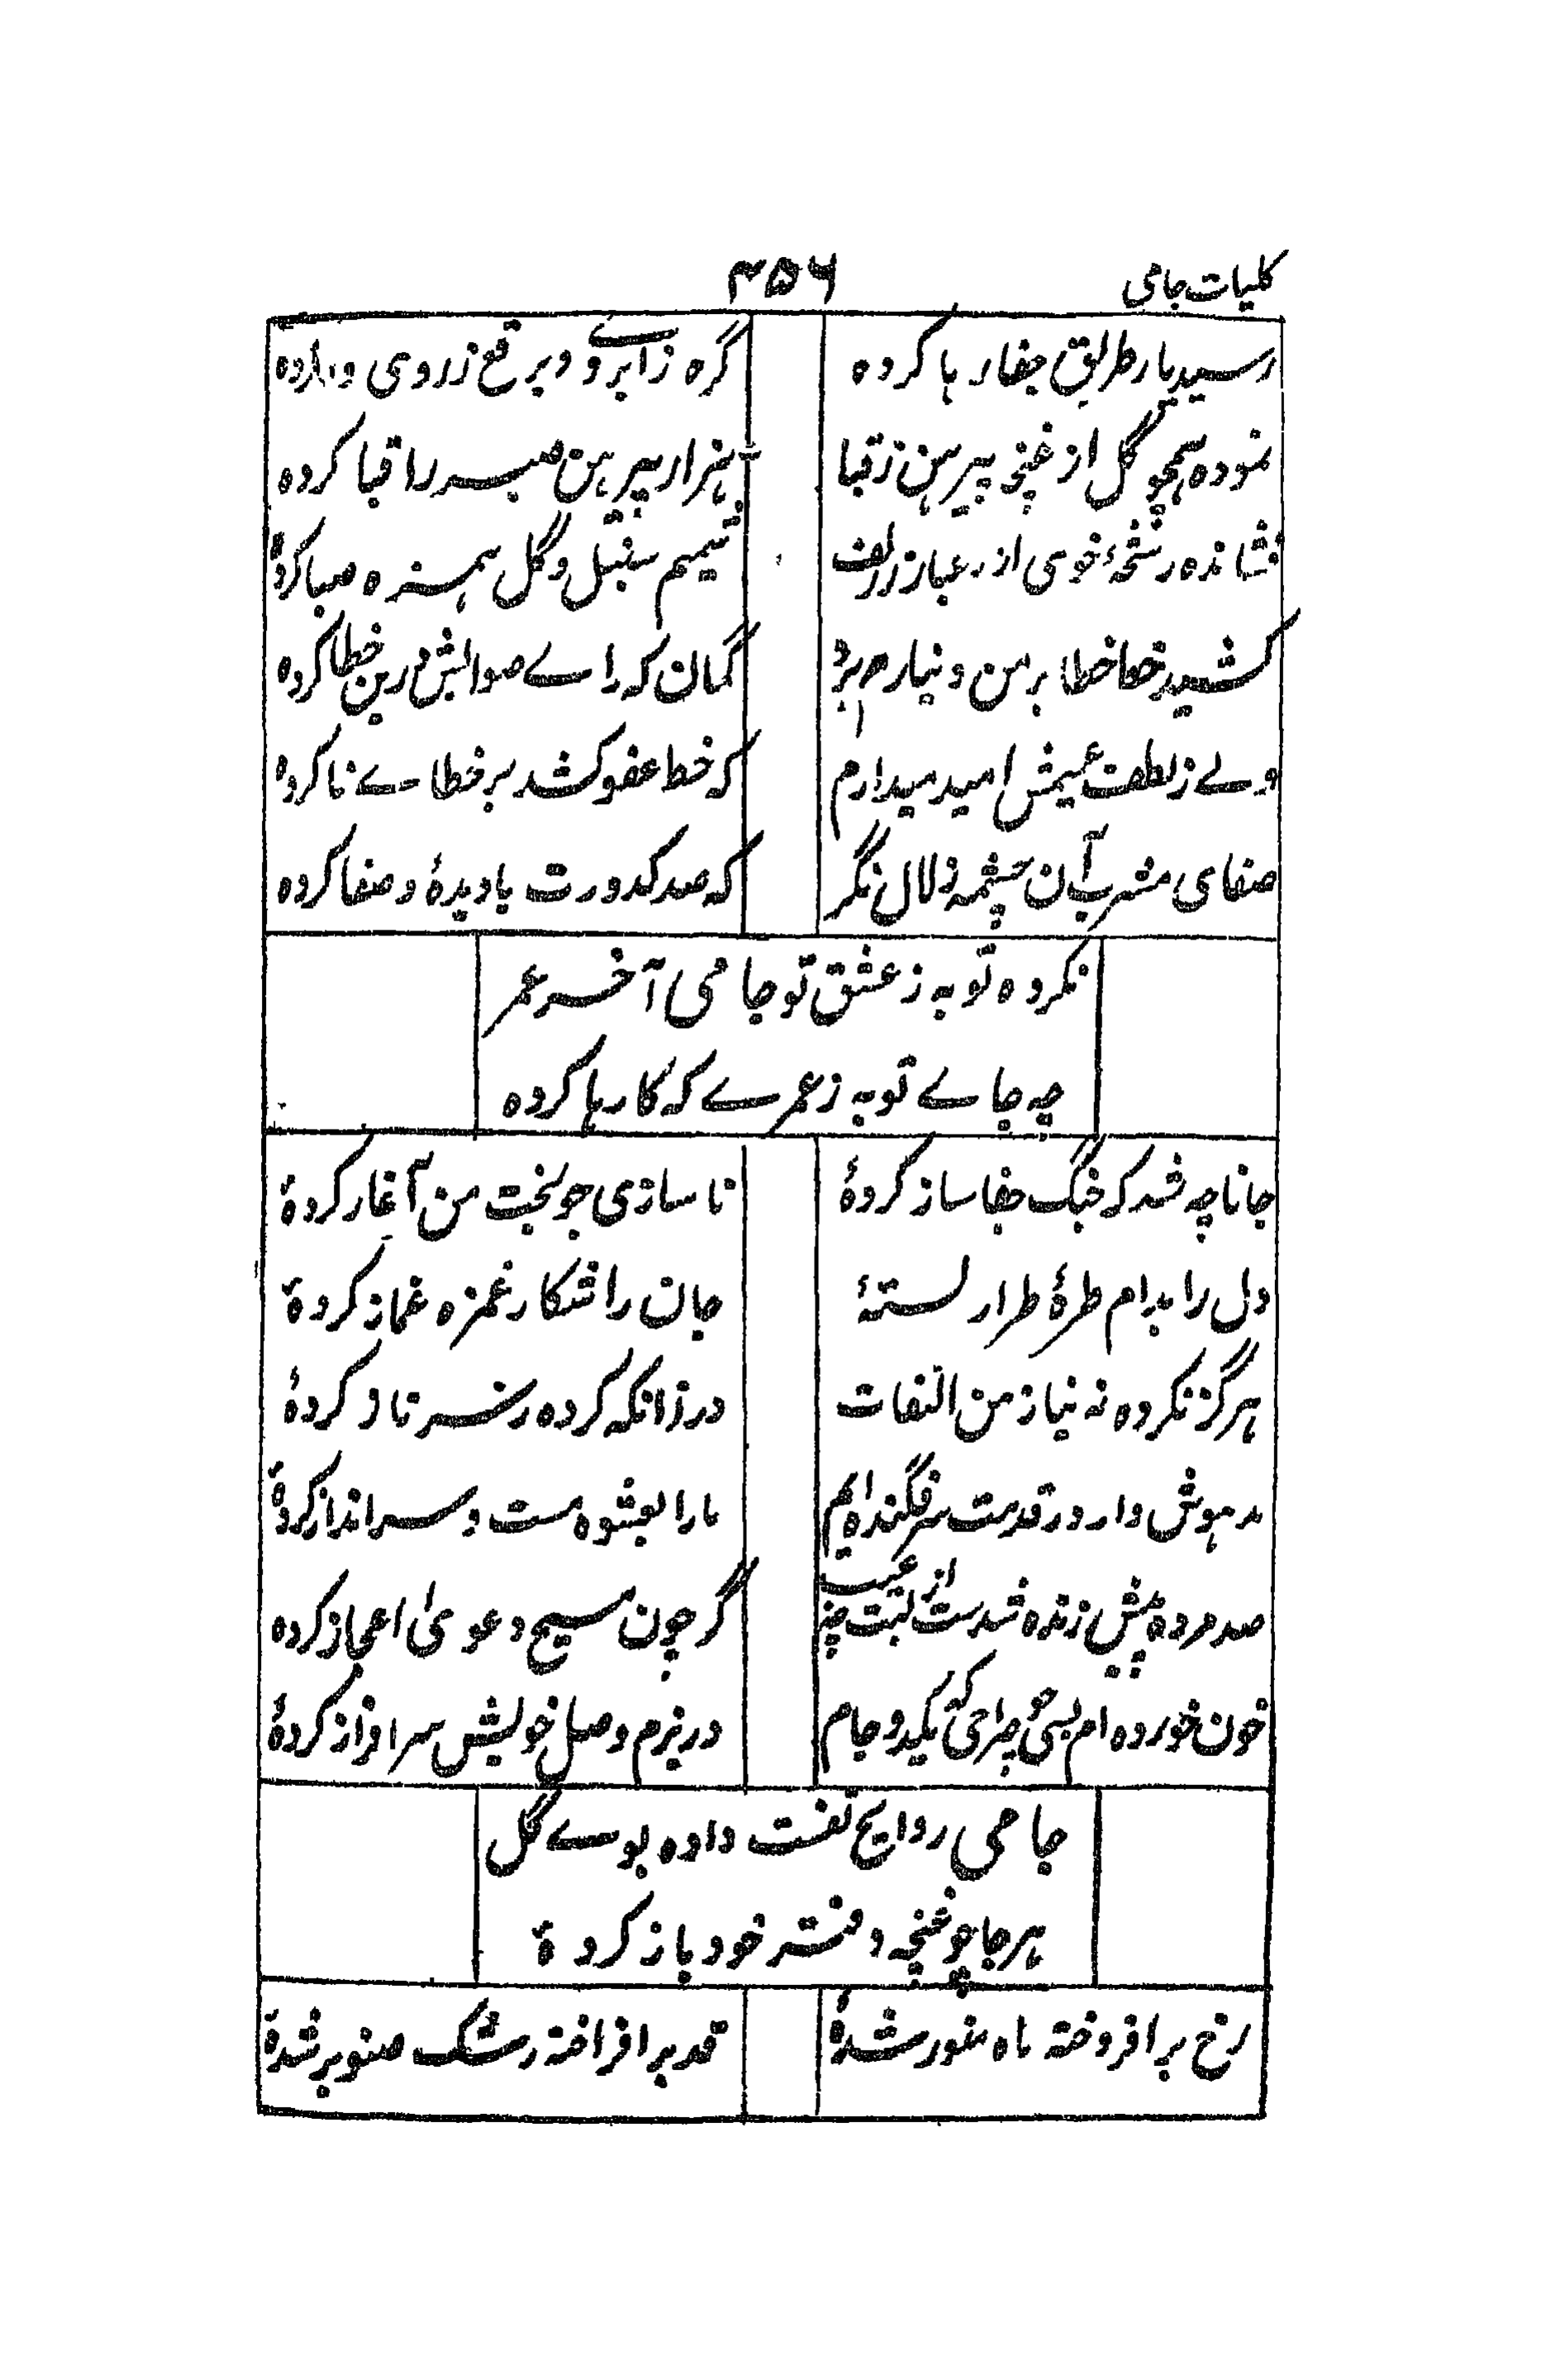 کلیات جامی
۴۵۶
رسید یار طریق جفا رہا کردہ
گرہ ز ابروے و برقع ز روی وا کردہ
نمودہ ہمچو گل از غنچہ پیرہن ز قبا
ہزار پیرہن صبر را قبا کردہ
فشاندہ رشحۂ خوی از غبار زلف
شمیم سنبل و گل ہمرہ صبا کردہ
کشید خط خطا بر من و نیارم برد
گمان کہ راے صوابش درین خطا کردہ
ولے ز لطف عمیمش امید میدارم
کہ خط عفو کشد بر خطاے ناکردہ
صفای مشرب آن چشمہ زلال نگر
کہ صد کدورت با دیدۂ و صفا کردہ
نکردہ توبہ ز عشق تو جامی آخر عمر
چہ جاے توبہ ز عمرے کہ کارہا کردہ
جانا چہ شد کہ جنگ جفا ساز کردۂ
ناسازی چو بخت من آغاز کردۂ
دل را بدام طرۂ طرار بستۂ
جان را شکار غمزہ غماز کردۂ
ہرگز نکردہ نہ نیاز من التفات
ورزانکہ کردہ ز سر ناز کردۂ
مدہوش وار در قدمت سر فگندہ ایم
مارا بعشوہ مست و سرانداز کردۂ
صد مردہ پیش زندہ شدست از لبت عجب
گر چون مسیح دعوی اعجاز کردہ
خون خوردہ ام بسی چو صراحی کہ یکدو جام
در بزم وصل خویش سرافراز کردۂ
جامی روایح نفست دادہ بوے گل
ہرجا چو غنچہ دفتر خود باز کردۂ
رخ بر افروختہ ماہ منور شدۂ
قد بر افراختہ رشک صنوبر شدۂ